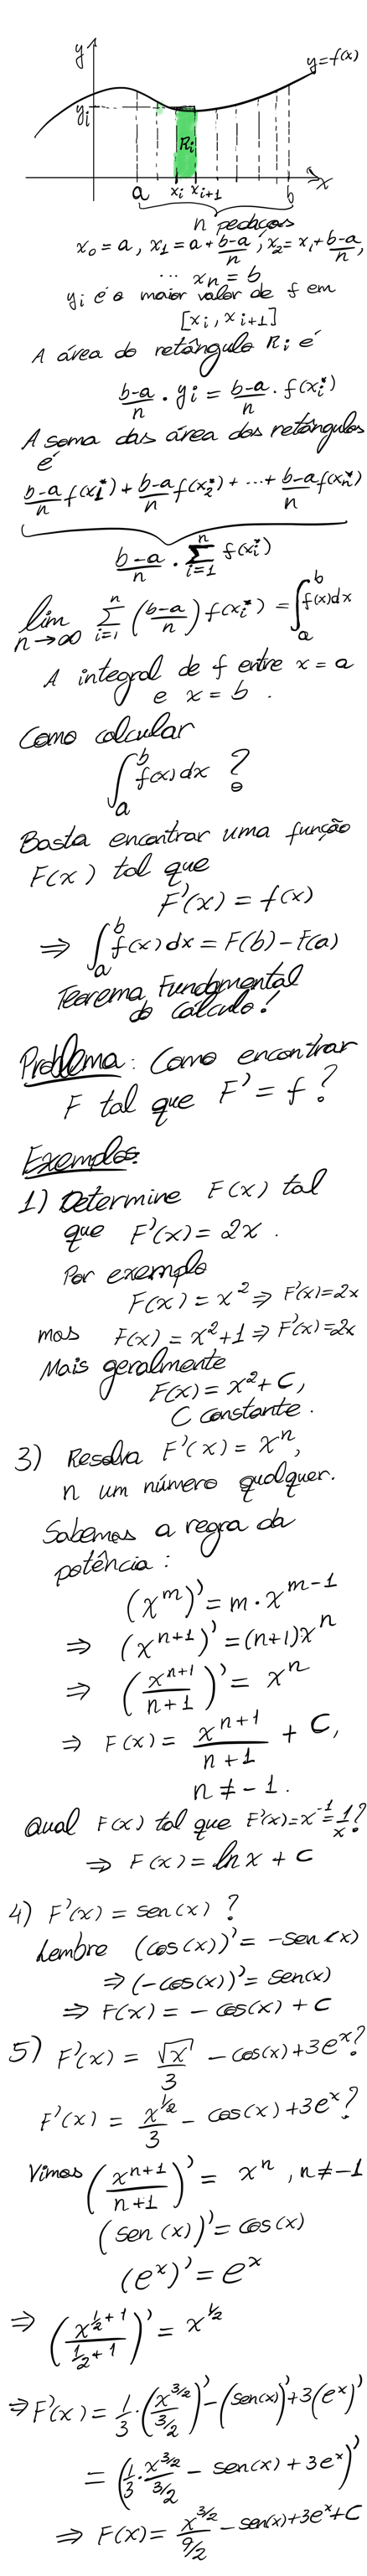 y
y=f(x)
yi
Ri
a xi xi+1 b x
n pedaços
x₀ = a, x₁ = a + (b-a)/n, x₂ = x₁ + (b-a)/n,
... xn = b
yi é o maior valor de f em
[xi, xi+1]
A área do retângulo Ri é
(b-a)/n · yi = (b-a)/n · f(xi*)
A soma das área dos retângulos
é
(b-a)/n f(x₁*) + (b-a)/n f(x₂*) + ... + (b-a)/n f(xn*)
(b-a)/n · Σ_{i=1}^{n} f(xi*)
lim_{n→∞} Σ_{i=1}^{n} ((b-a)/n) f(xi*) = ∫_a^b f(x)dx
A integral de f entre x = a
e x = b.
Como calcular
∫_a^b f(x)dx ?
Basta encontrar uma função
F(x) tal que
F'(x) = f(x)
⇒ ∫_a^b f(x)dx = F(b) - F(a)
Teorema Fundamental
do Cálculo!
Problema: Como encontrar
F tal que F' = f?
Exemplos:
1) Determine F(x) tal
que F'(x) = 2x.
Por exemplo
F(x) = x² ⇒ F'(x)=2x
mas F(x) = x²+1 ⇒ F'(x)=2x
Mais geralmente
F(x) = x² + C,
C constante.
3) Resolva F'(x) = xⁿ,
n um número qualquer.
Sabemos a regra da
potência:
(x^m)' = m·x^{m-1}
⇒ (x^{n+1})' = (n+1)xⁿ
⇒ (x^{n+1}/(n+1))' = xⁿ
⇒ F(x) = x^{n+1}/(n+1) + C,
n ≠ -1.
Qual F(x) tal que F'(x)=x⁻¹=1/x?
⇒ F(x) = ln x + C
4) F'(x) = sen(x) ?
Lembre (cos(x))' = -sen(x)
⇒ (-cos(x))' = sen(x)
⇒ F(x) = -cos(x) + C
5) F'(x) = √x/3 - cos(x) + 3eˣ?
F'(x) = x^{1/2}/3 - cos(x) + 3eˣ?
Vimos (x^{n+1}/(n+1))' = xⁿ, n≠-1
(sen(x))' = cos(x)
(eˣ)' = eˣ
⇒ (x^{1/2+1}/(1/2+1))' = x^{1/2}
⇒ F'(x) = 1/3·(x^{3/2}/(3/2))' - (sen(x))' + 3(eˣ)'
= (1/3·x^{3/2}/(3/2) - sen(x) + 3eˣ)'
⇒ F(x) = x^{3/2}/(9/2) - sen(x) + 3eˣ + C